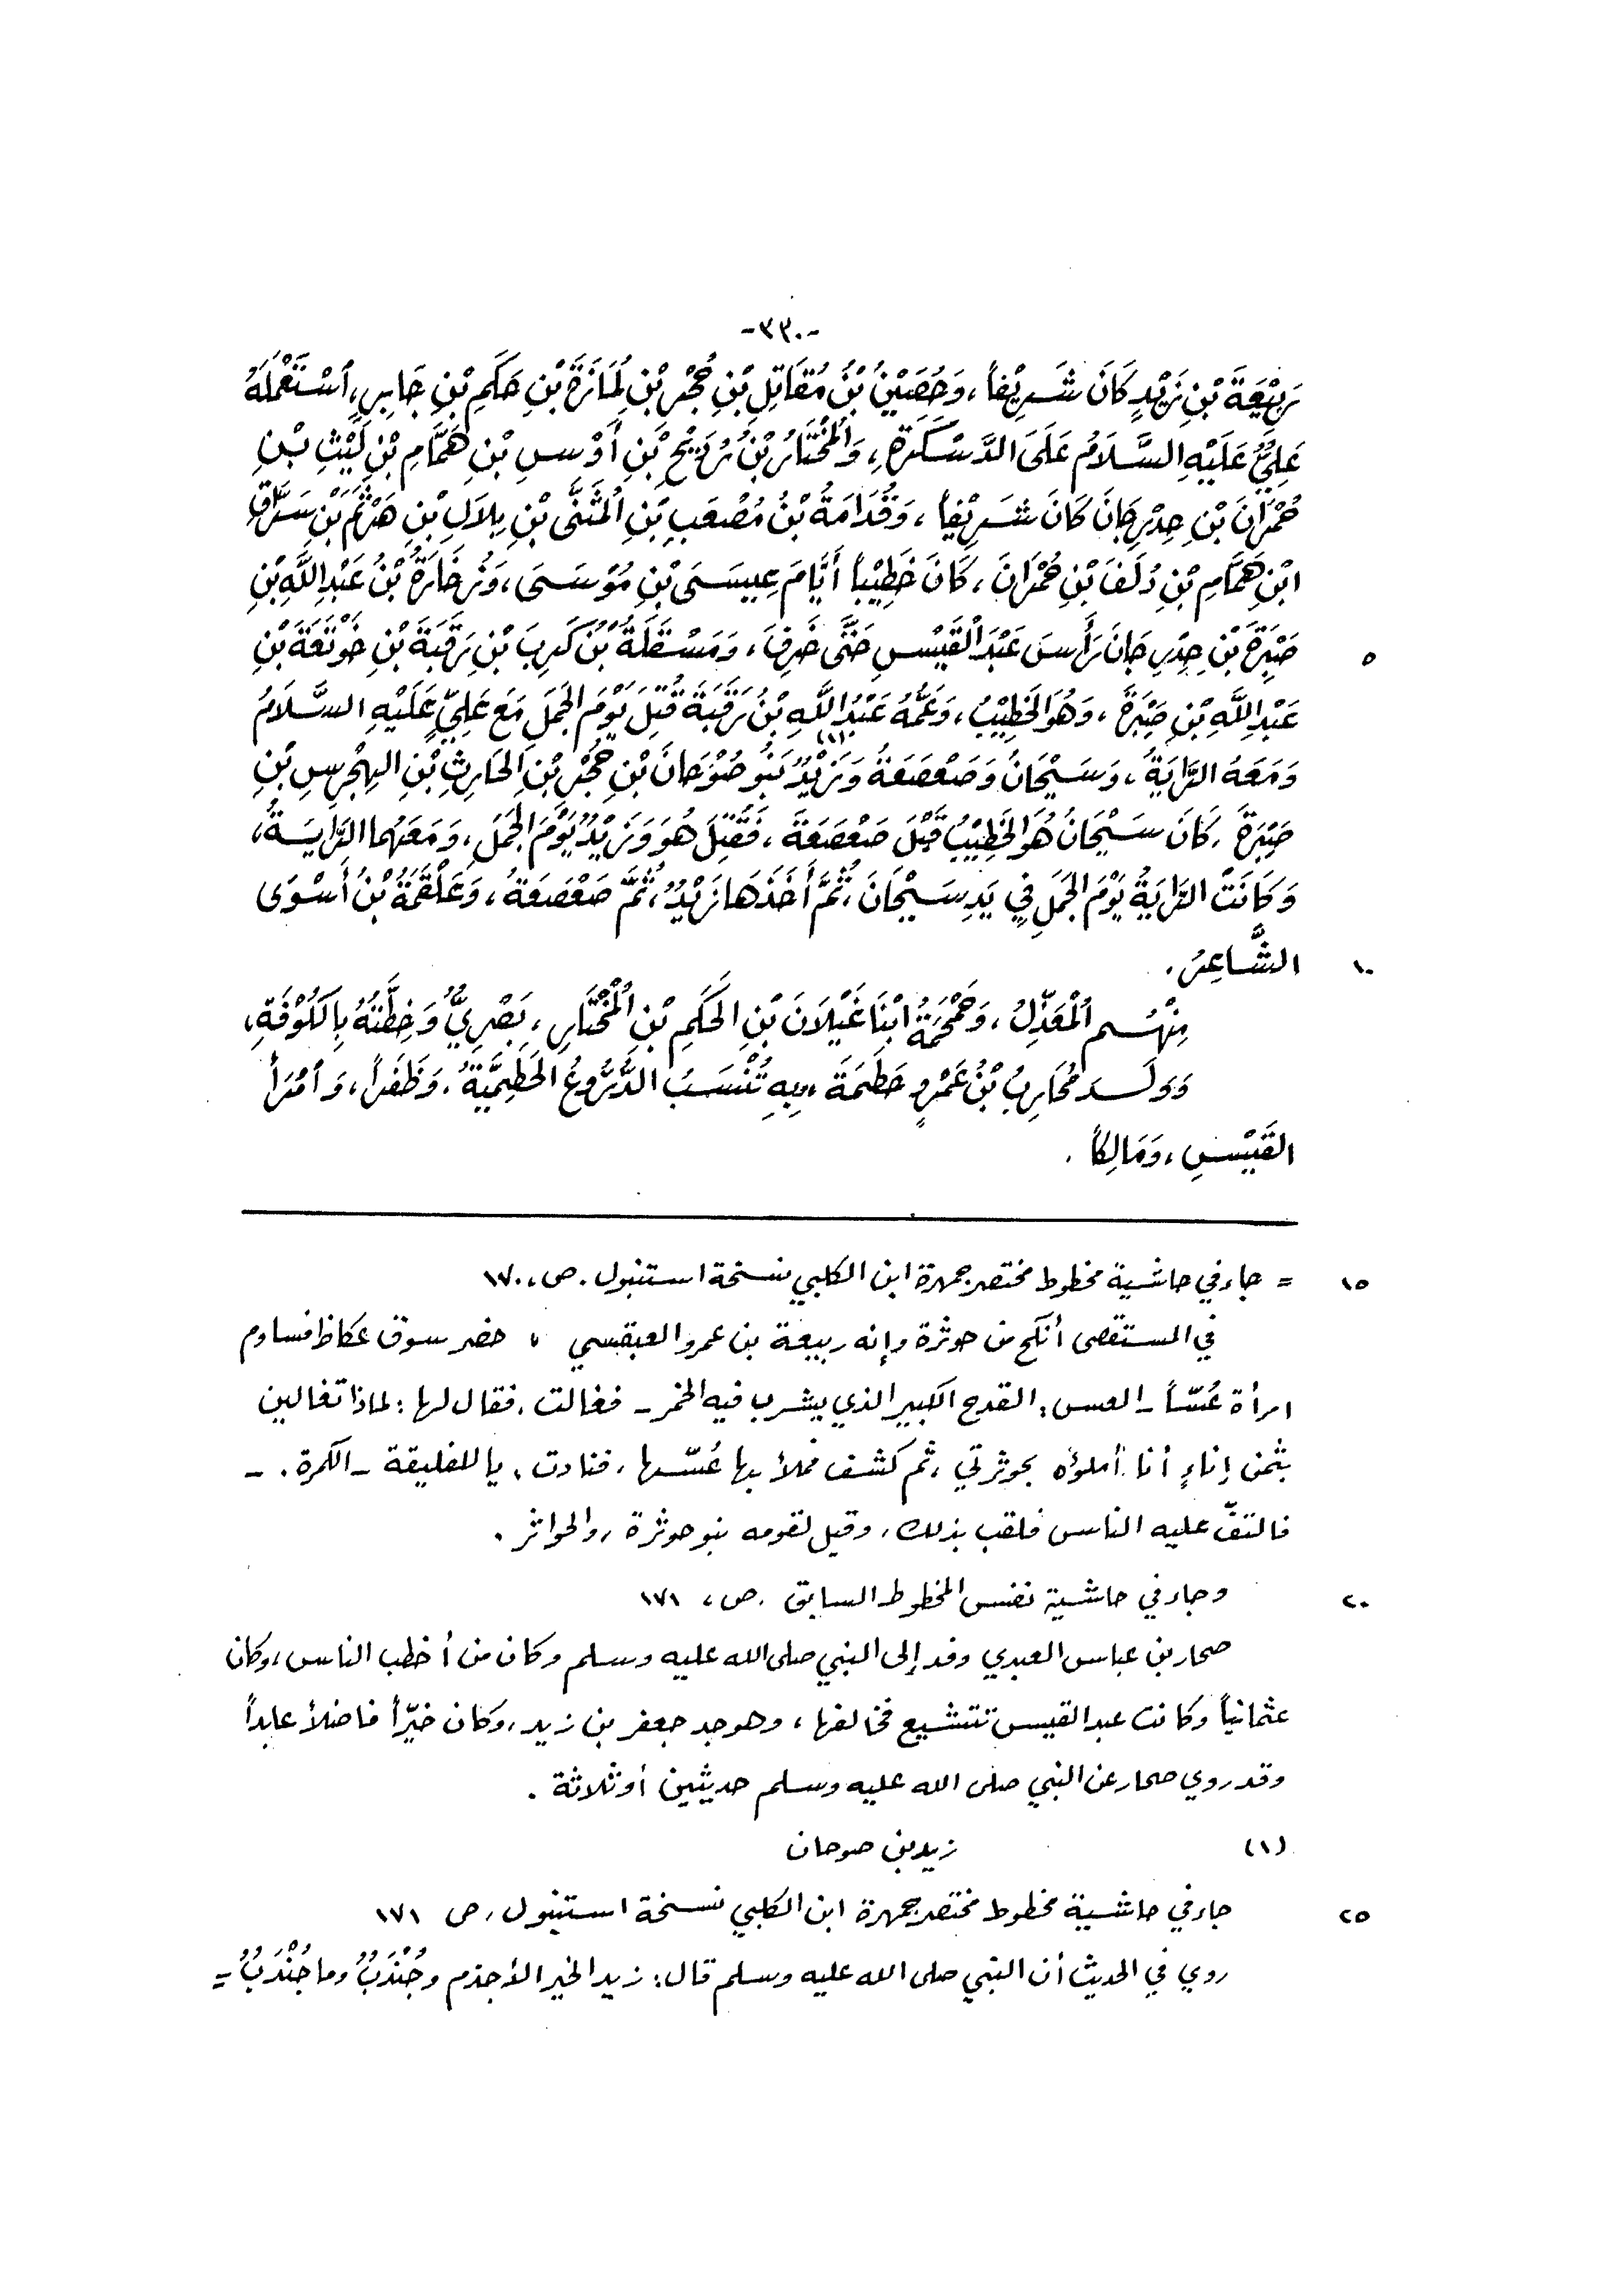 -٣٣٠-
رَبِيْعَةَ بْنِ زَيْدٍ كَانَ شَرِيْفاً، وَحُصَيْنُ بْنُ مُقَاتِلِ بْنِ حُجْرِ بْنِ لُمَازَةَ بْنِ حَكَمِ بْنِ جَابِرٍ، اُسْتَعْمَلَهُ
عَلِيٌّ عَلَيْهِ السَّلَامُ عَلَى الدَّسْكَرَةِ، وَالْمُخْتَارُ بْنُ رُدَيْحِ بْنِ أَوْسِ بْنِ هَمَّامِ بْنِ لَيْثِ بْنِ
حُمْرَانَ بْنِ حِدْرِجَانَ كَانَ شَرِيْفاً، وَقُدَامَةُ بْنُ مُصْعَبِ بْنِ الْمُثَنَّى بْنِ بِلَالِ بْنِ هَرْثَمِ بْنِ سَرَّاقِ
ابْنِ هَمَّامِ بْنِ دُلَفَ بْنِ حُمْرَانَ، كَانَ خَطِيْباً أَيَّامَ عِيسَى بْنِ مُوْسَى، وَزُخَارَةُ بْنُ عَبْدِ اللَّهِ بْنِ
صَبِرَةَ بْنِ حِدْرِجَانَ رَأَسَ عَبْدَ الْقَيْسِ حَتَّى خَرِفَ، وَمَسْقَلَةُ بْنُ كَرِبَ بْنِ رَقَبَةَ بْنِ خَوْتَعَةَ بْنِ
٥
عَبْدِ اللَّهِ بْنِ صَبِرَةَ، وَهُوَ الْخَطِيْبُ، وَعَمُّهُ عَبْدُ اللَّهِ بْنُ رَقَبَةَ قُتِلَ يَوْمَ الجَمَلِ مَعَ عَلِيٍّ عَلَيْهِ السَّلَامُ
وَمَعَهُ الرَّايَةُ، وَسَيْحَانُ وَصَعْصَعَةُ وَزَيْدٌ (١) بَنُو صُوْحَانَ بْنِ حُجْرِ بْنِ الحَارِثِ بْنِ الهِجْرِسِ بْنِ
صَبِرَةَ، كَانَ سَيْحَانُ هُوَ الخَطِيْبُ قَبْلَ صَعْصَعَةَ، فَقُتِلَ هُوَ وَزَيْدٌ يَوْمَ الجَمَلِ، وَمَعَهُمَا الرَّايَةُ،
وَكَانَتِ الرَّايَةُ يَوْمَ الجَمَلِ فِي يَدِ سَيْحَانَ، ثُمَّ أَخَذَهَا زَيْدٌ، ثُمَّ صَعْصَعَةُ، وَعَلْقَمَةُ بْنُ أَسْوَى
الشَّاعِرُ.
١٠
مِنْهُم الْمُعَذِّلُ، وَحَمْحَمَةُ ابْنَا غَيْلَانَ بْنِ الحَكَمِ بْنِ الْمُخْتَارِ، بَصْرِيٌّ وَخِطَّتُهُ بِالكُوْفَةِ،
وَوَلَدَ مُحَارِبُ بْنُ عَمْرٍو حَطَمَةَ، وَبِهِ تُنْسَبُ الدُّرُوعُ الحَطَمِيَّةُ، وَظَفَراً، وَامْرَأَ
القَيْسِ، وَمَالِكاً.
١٥ = جاء في حاشية مخطوط مختصر جمهرة ابن الكلبي نسخة استنبول. ص، ١٧٠
في المستقصى أنكح من حوثرة وإنه ربيعة بن عمرو العبقسي، حضر سوق عكاظ فساوم
امرأة عُسّاً - العس: القدح الكبير الذي يشرب فيه الخمر - فغالت، فقال لها: لماذا تغالين
بثمن إناءٍ أنا أملؤه بحوثرتي، ثم كشف فملأ بها عُسّها، فنادت، يا للفليقة - الكمرة. -
فالتفّ عليه الناس فلقب بذلك، وقيل لقومه بنو حوثرة، والحواثر.
٢٠ وجاء في حاشية نفس المخطوط السابق. ص، ١٧١
صحار بن عباس العبدي وفد إلى النبي صلى الله عليه وسلم وكان من أخطب الناس، وكان
عثمانياً وكانت عبد القيس تتشيع فخالفها، وهو جد جعفر بن زيد، وكان خيّراً فاضلاً عابداً
وقد روي صحار عن النبي صلى الله عليه وسلم حديثين أو ثلاثة.
(١) زيد بن صوحان
٢٥ جاء في حاشية مخطوط مختصر جمهرة ابن الكلبي نسخة استنبول، ص ١٧١
روي في الحديث أن النبي صلى الله عليه وسلم قال: زيد الخير الأجذم وجُنْدَبٌ وما جُنْدَبٌ =